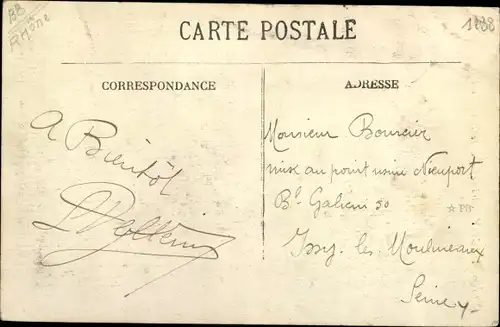 BB
Rhône
1288
CARTE POSTALE
CORRESPONDANCE
ADRESSE
A Bientôt
Monsieur Boursier
mise au point usine Nieuport
Bd Galieni 50
☆ PB
Issy les Moulineaux
Seine